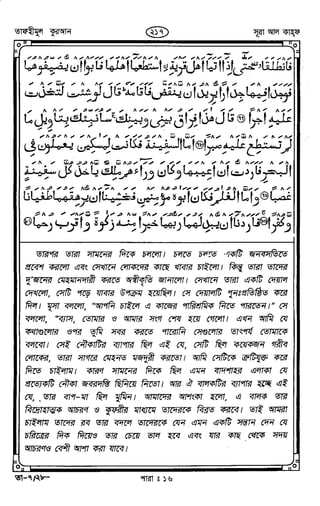 তাফহীমুল কুরআন
২১৭
সূরা আল কাহফ
فَانْطَلَقَا حَتَّى إِذَا أَتَيَا أَهْلَ قَرْيَةِ اسْتَطْعَمَا أَهْلَهَا فَأَبَوْا أَنْ يُضَيِّفُوهُمَا
فَوَجَدَا فِيهَا جِدَارًا يُرِيدُ أَنْ يَنْقَضَّ فَأَقَامَهُ قَالَ لَوْ شِئْتَ لَتَّخَذْتَ
عَلَيْهِ أَجْرًا ﴿﴾ قَالَ هَذَا فِرَاقُ بَيْنِي وَبَيْنِكَ سَأُنَبِّئُكَ بِتَأْوِيلِ مَا
لَمْ تَسْتَطِعْ عَلَيْهِ صَبْرًا ﴿﴾ أَمَّا السَّفِينَةُ فَكَانَتْ لِمَسٰكِينَ يَعْمَلُونَ فِي
الْبَحْرِ فَأَرَدْتُّ أَنْ أَعِيبَهَا وَكَانَ وَرَاءَهُمْ مَّلِكٌ يَأْخُذُ كُلَّ سَفِينَةٍ
غَصْبًا ﴿﴾ وَأَمَّا الْغُلٰمُ فَكَانَ أَبَوٰهُ مُؤْمِنَيْنِ فَخَشِينَا أَنْ يُرْهِقَهُمَا طُغْيَانًا
وَكُفْرًا ﴿﴾ فَأَرَدْنَا أَنْ يُبْدِلَهُمَا رَبُّهُمَا خَيْرًا مِّنْهُ زَكٰوةً وَأَقْرَبَ رُحْمًا ﴿﴾
তারপর তারা সামনের দিকে চললো। চলতে চলতে একটি জনবসতিতে
প্রবেশ করলো এবং সেখানে লোকদের কাছে খাবার চাইলো। কিন্তু তারা তাদের
দু'জনের মেহমানদারী করতে অস্বীকৃতি জানালো। সেখানে তারা একটি দেয়াল
দেখলো, সেটি পড়ে যাবার উপক্রম হয়েছিল। সে দেয়ালটি পুনঃপ্রতিষ্ঠিত করে
দিল। মূসা বললো, "আপনি চাইলে এ কাজের পারিশ্রমিক নিতে পারতেন।" সে
বললো, "ব্যাস, তোমার ও আমার সংগ শেষ হয়ে গেলো। এখন আমি যে
কথাগুলোর ওপর তুমি সবর করতে পারোনি সেগুলোর তাৎপর্য তোমাকে
বলবো। সেই নৌকাটির ব্যাপার ছিল এই যে, সেটি ছিল কয়েকজন গরীব
লোকের, তারা সাগরে মেহনত মজদুরী করতো। আমি সেটিকে ত্রুটিযুক্ত করে
দিতে চাইলাম। কারণ সামনের দিকে ছিল এমন বাদশাহর এলাকা যে
প্রত্যেকটি নৌকা জবরদস্তি ছিনিয়ে নিতো। আর ঐ বালকটির ব্যাপার হচ্ছে এই
যে, তার বাপ-মা ছিল মুমিন। আমাদের আশংকা হলো, এ বালক তার
বিদ্রোহাত্মক আচরণ ও কুফরীর মাধ্যমে তাদেরকে বিব্রত করবে। তাই আমরা
চাইলাম তাদের রব তার বদলে তাদেরকে যেন এমন একটি সন্তান দেন যে
চরিত্রের দিক দিয়েও তার চেয়ে ভাল হবে এবং যার কাছ থেকে সদয়
আচরণও বেশী আশা করা যাবে।
তা-৭/২৮-
পারা : ১৬